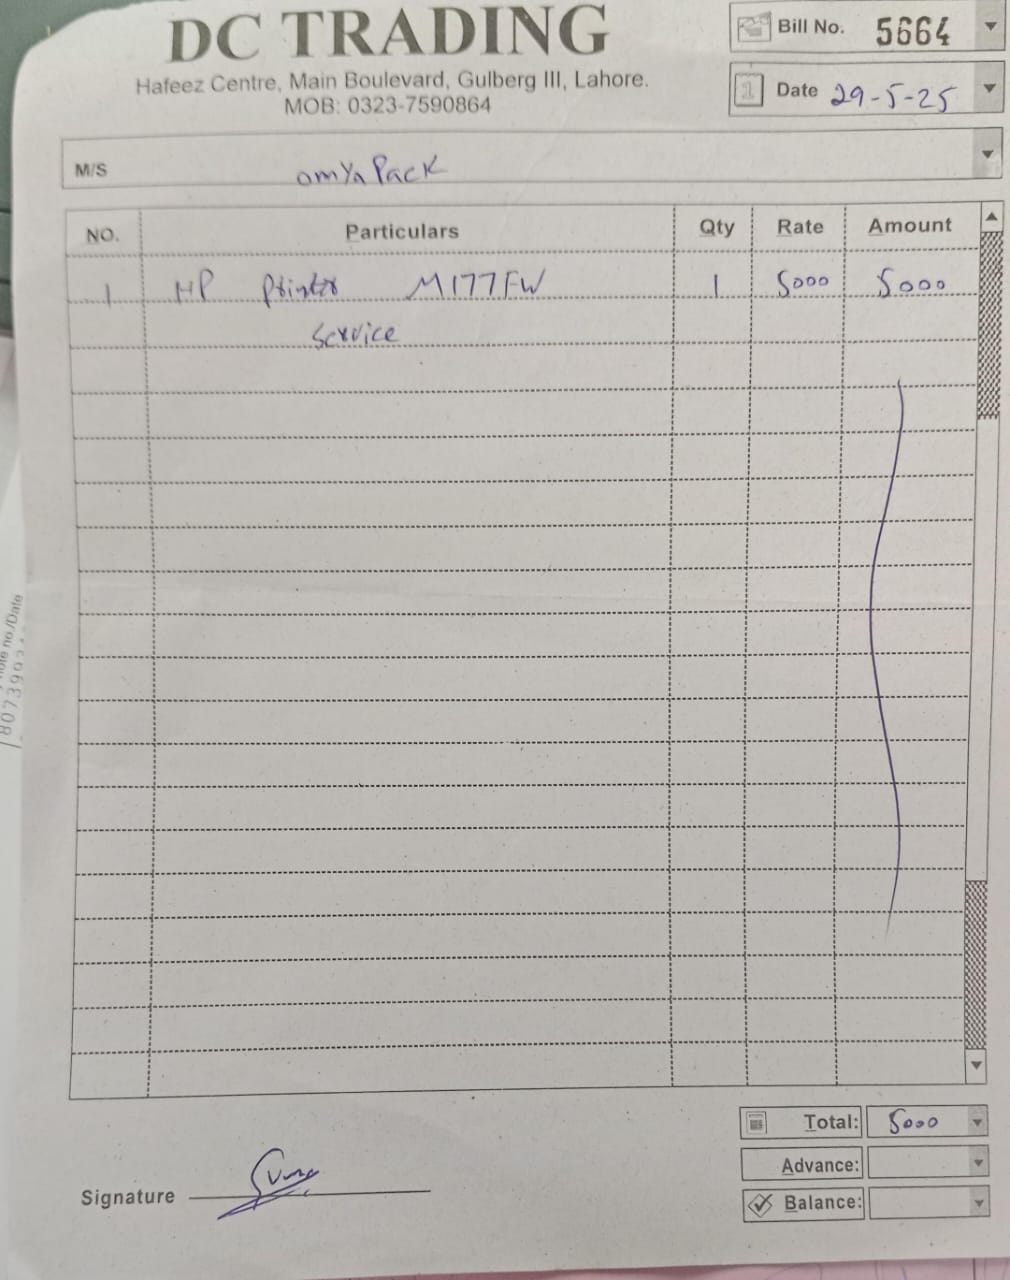 DC TRADING
Hafeez Centre, Main Boulevard, Gulberg III, Lahore.
MOB: 0323-7590864
Bill No. 5664
Date 29-5-25
M/S omya Pack
NO. Particulars Qty Rate Amount
1 HP Printer M177FW 1 5000 5000
Service
Total: 5000
Advance:
Balance:
Signature
no./Date